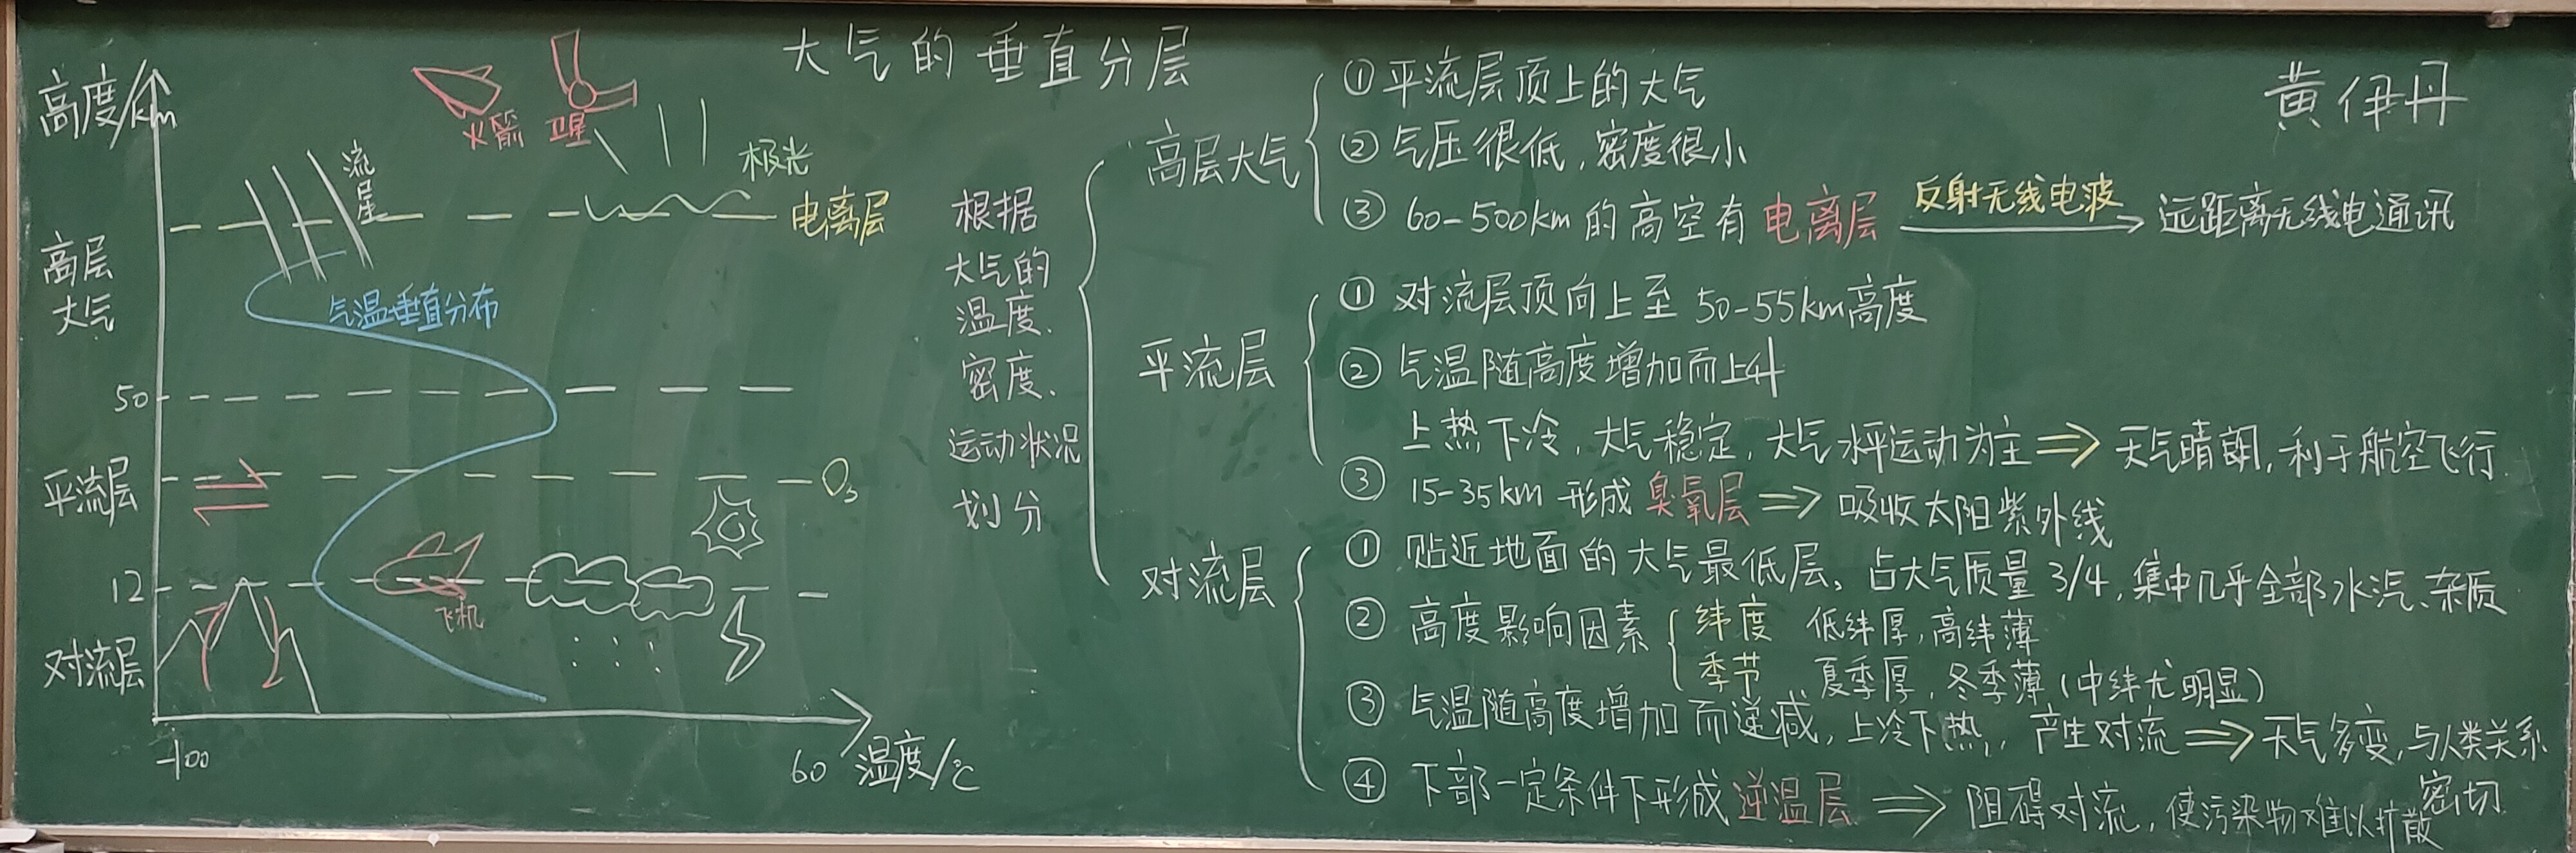 大气的垂直分层
黄伊丹
高度/km
火箭 卫星
流星
极光
电离层
高层大气
气温垂直分布
50
平流层
O₃
12
飞机
对流层
-100
60 温度/℃
根据
大气的
温度、
密度、
运动状况
划分
高层大气
① 平流层顶上的大气
② 气压很低，密度很小
③ 60-500km的高空有电离层 反射无线电波 远距离无线电通讯
平流层
① 对流层顶向上至 50-55km高度
② 气温随高度增加而上升
上热下冷，大气稳定，大气水平运动为主 ⇒ 天气晴朗，利于航空飞行
③ 15-35km 形成臭氧层 ⇒ 吸收太阳紫外线
对流层
① 贴近地面的大气最低层，占大气质量3/4，集中几乎全部水汽、杂质
② 高度影响因素
纬度 低纬厚，高纬薄
季节 夏季厚，冬季薄（中纬尤明显）
③ 气温随高度增加而递减，上冷下热，产生对流 ⇒ 天气多变，与人类关系
密切
④ 下部一定条件下形成逆温层 ⇒ 阻碍对流，使污染物难以扩散